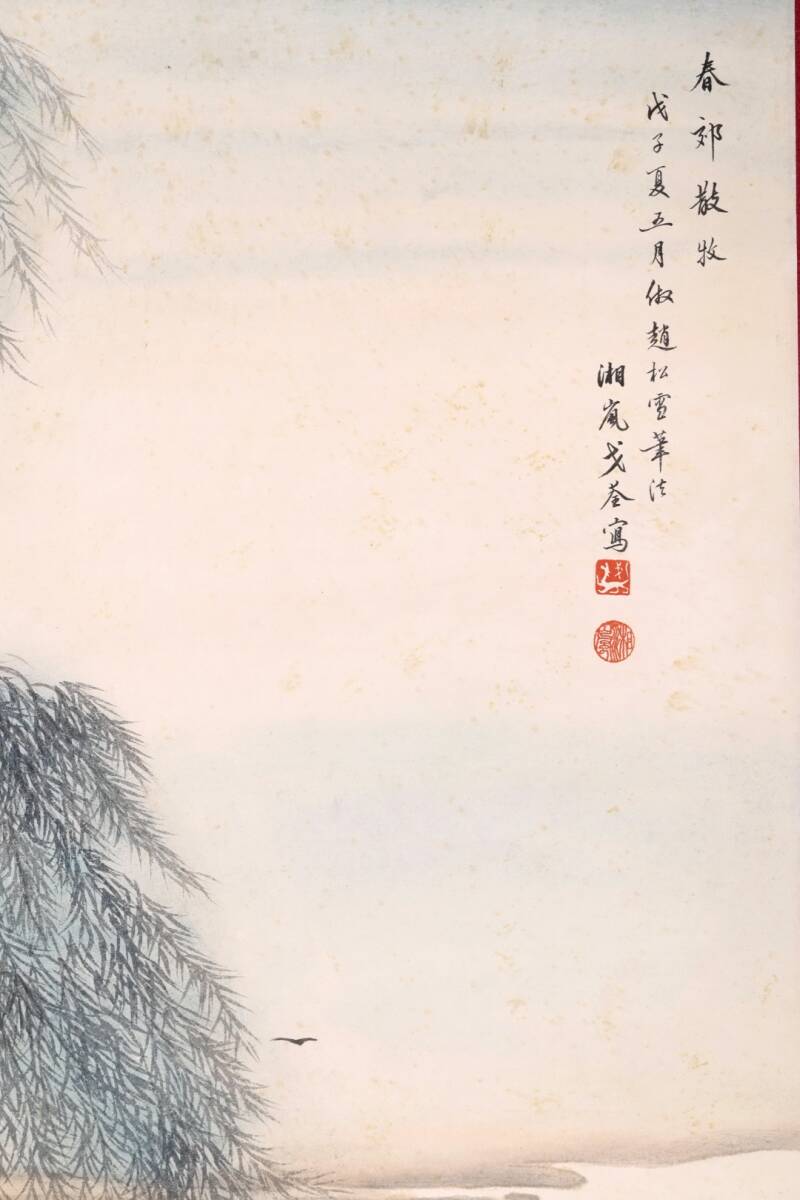 春郊散牧
戊子夏五月俶趙松雪筆法
湘嵐戈荃寫